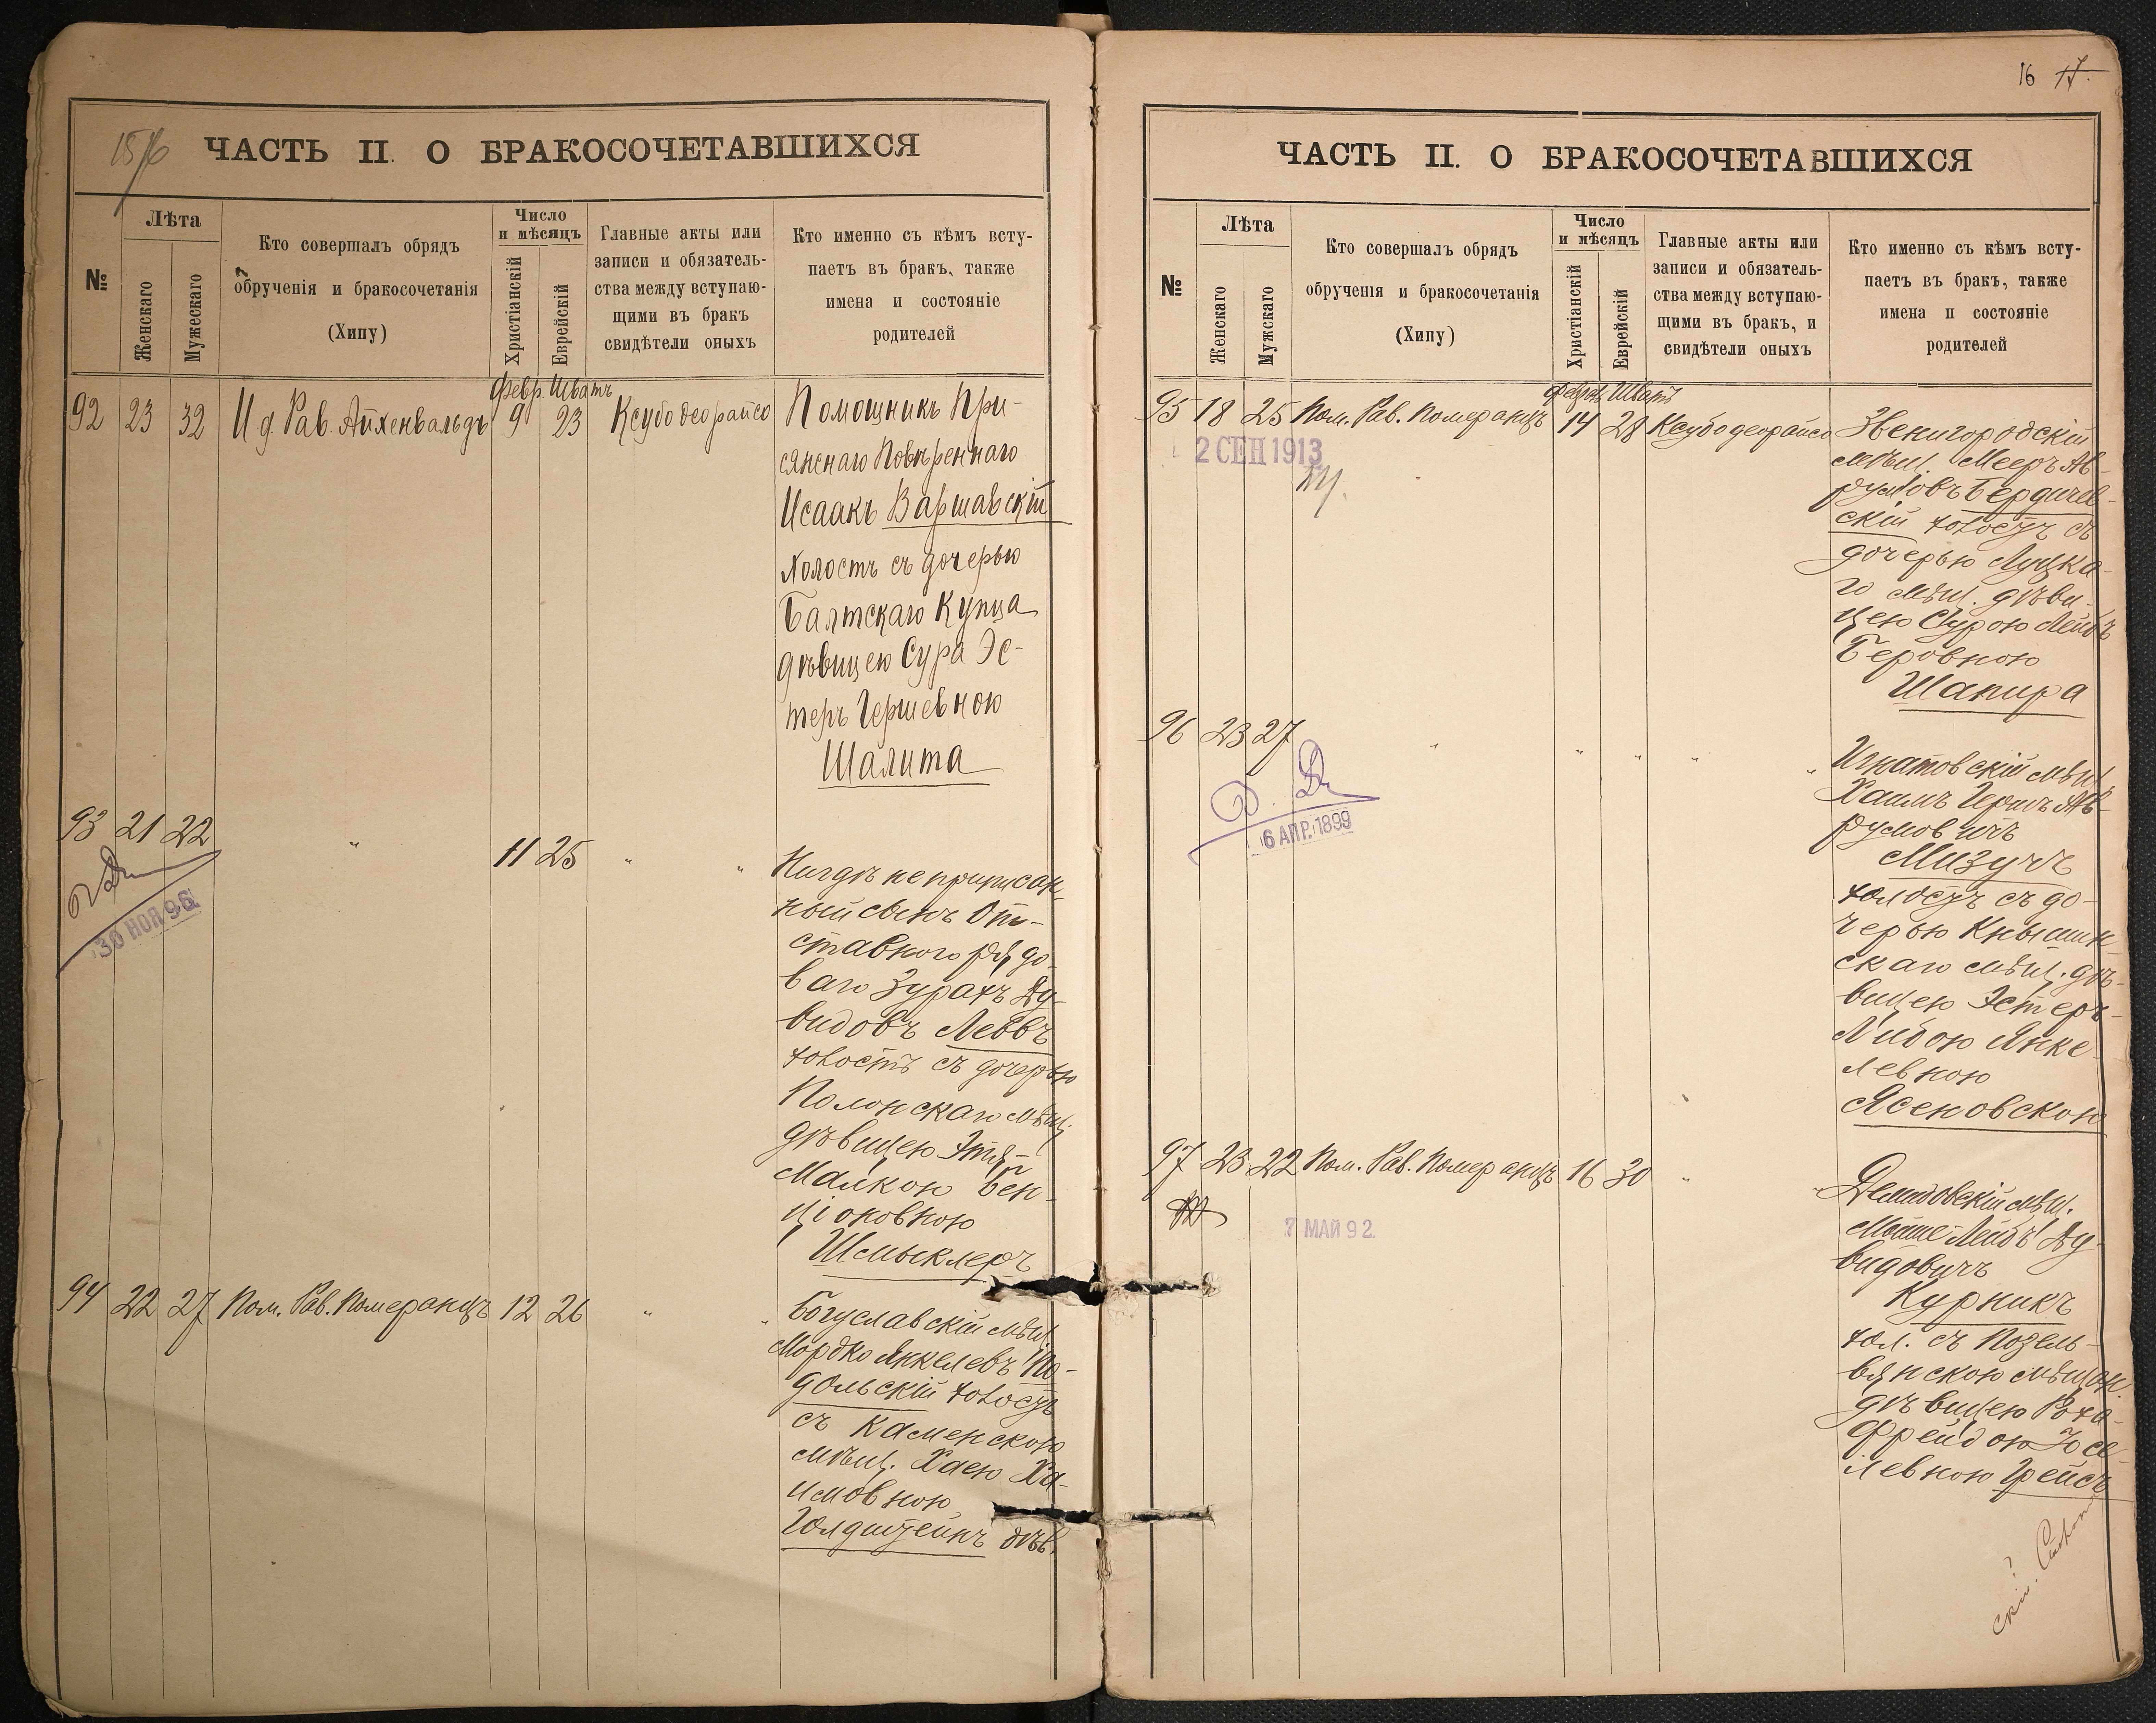 ЧАСТЬ II. О БРАКОСОЧЕТАВШИХСЯ
№
Лѣта
Женскаго
Мужескаго
Кто совершалъ обрядъ
обрученія и бракосочетанія
(Хипу)
Число
и мѣсяцъ
Христіанскій
Еврейскій
Главные акты или
записи и обязатель-
ства между вступаю-
щими въ бракъ
свидѣтели оныхъ
Кто именно съ кѣмъ всту-
паетъ въ бракъ, также
имена и состояніе
родителей
Февр. Шватъ
92 23 32 И. д. Рав. Айхенвальдъ 9 23 Ксубо деорайсо
Помощникъ При-
сяжнаго Повѣреннаго
Исаакъ Варшавскій
холостъ съ дочерью
Балтскаго Купца
дѣвицею Сура Эс-
теръ Гершевною
Шалита
93 21 22 " 11 25 " "
30 НОЯ 96
Нигдѣ не приписан-
ный сынъ От-
ставного рядо-
ваго Зурахъ Ду-
видовъ Левъ
холостъ съ дочерью
Полонскаго мѣщ.
дѣвицею Этя-
Малкою Бен-
ціоновною
Шмыклеръ
94 22 27 Пом. Рав. Померанцъ 12 26 " "
Богуславскій мѣщ.
Мордко Янкелевъ По-
дольскій холостъ
съ Каменскою
мѣщ. Хаею Ха-
имовною
Голдштейнъ дѣв.
16 17.
ЧАСТЬ II. О БРАКОСОЧЕТАВШИХСЯ
№
Лѣта
Женскаго
Мужскаго
Кто совершалъ обрядъ
обрученія и бракосочетанія
(Хипу)
Число
и мѣсяцъ
Христіанскій
Еврейскій
Главные акты или
записи и обязатель-
ства между вступаю-
щими въ бракъ, и
свидѣтели оныхъ
Кто именно съ кѣмъ всту-
паетъ въ бракъ, также
имена и состояніе
родителей
Февр. Шватъ
95 18 25 Пом. Рав. Померанцъ 14 28 Ксубо деорайсо
2 СЕН 1913
Звенигородскій
мѣщ. Мееръ Ав-
румовъ Бердичев-
скій холостъ съ
дочерью Луцка-
го мѣщ. дѣви-
цею Сурою Лейбъ
Беровною
Шапира
96 23 27 " " " " "
6 АПР. 1899
Игнатовскій мѣщ.
Хаимъ Гершъ Ав-
румовичъ
Мизучъ
холостъ съ до-
черью Кнышин-
скаго мѣщ. дѣ-
вицею Эстеръ-
Либою Янке-
левною
Ясеновскою
97 23 22 Пом. Рав. Померанцъ 16 30 " "
7 МАЙ 92
Демидовскій мѣщ.
Мошше Лейбъ Ду-
видовичъ
Курникъ
хол. съ Позель-
вянскою мѣщан.
дѣвицею Роха-
Фрейдою Іосе-
левною Грейсъ